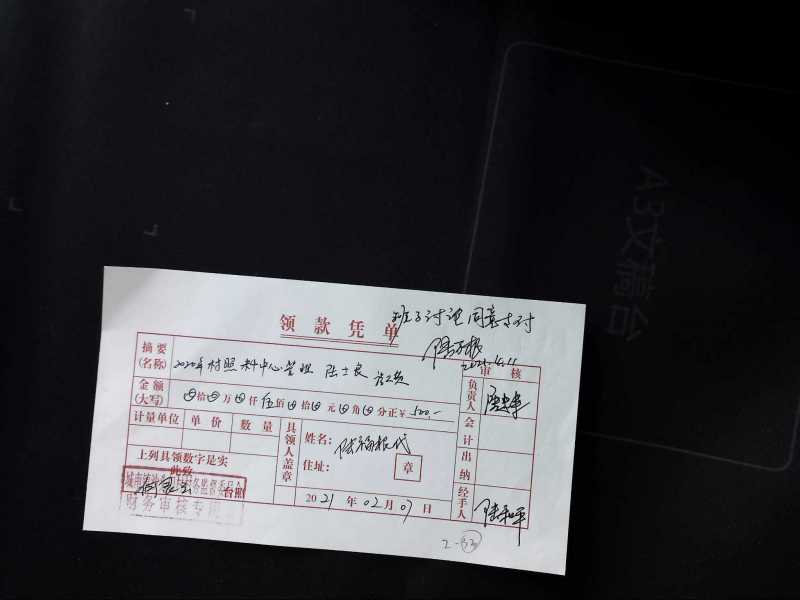 班子讨论同意支付
领款凭单
2021.4.11
摘要
(名称)
2020年村照料中心管理 陆士良 误工费
审核
金额
(大写)
拾 万 仟 伍 佰 拾 元 角 分正 ¥ 500.-
负责人
计量单位 单价 数量
具领人盖章
姓名: 陆福根代
会计
上列具领数字是实
此致
住址:
章
出纳
台照
财务审核专用
2021 年 02 月 07 日
经手人
陆和平
2-33
A3文稿台